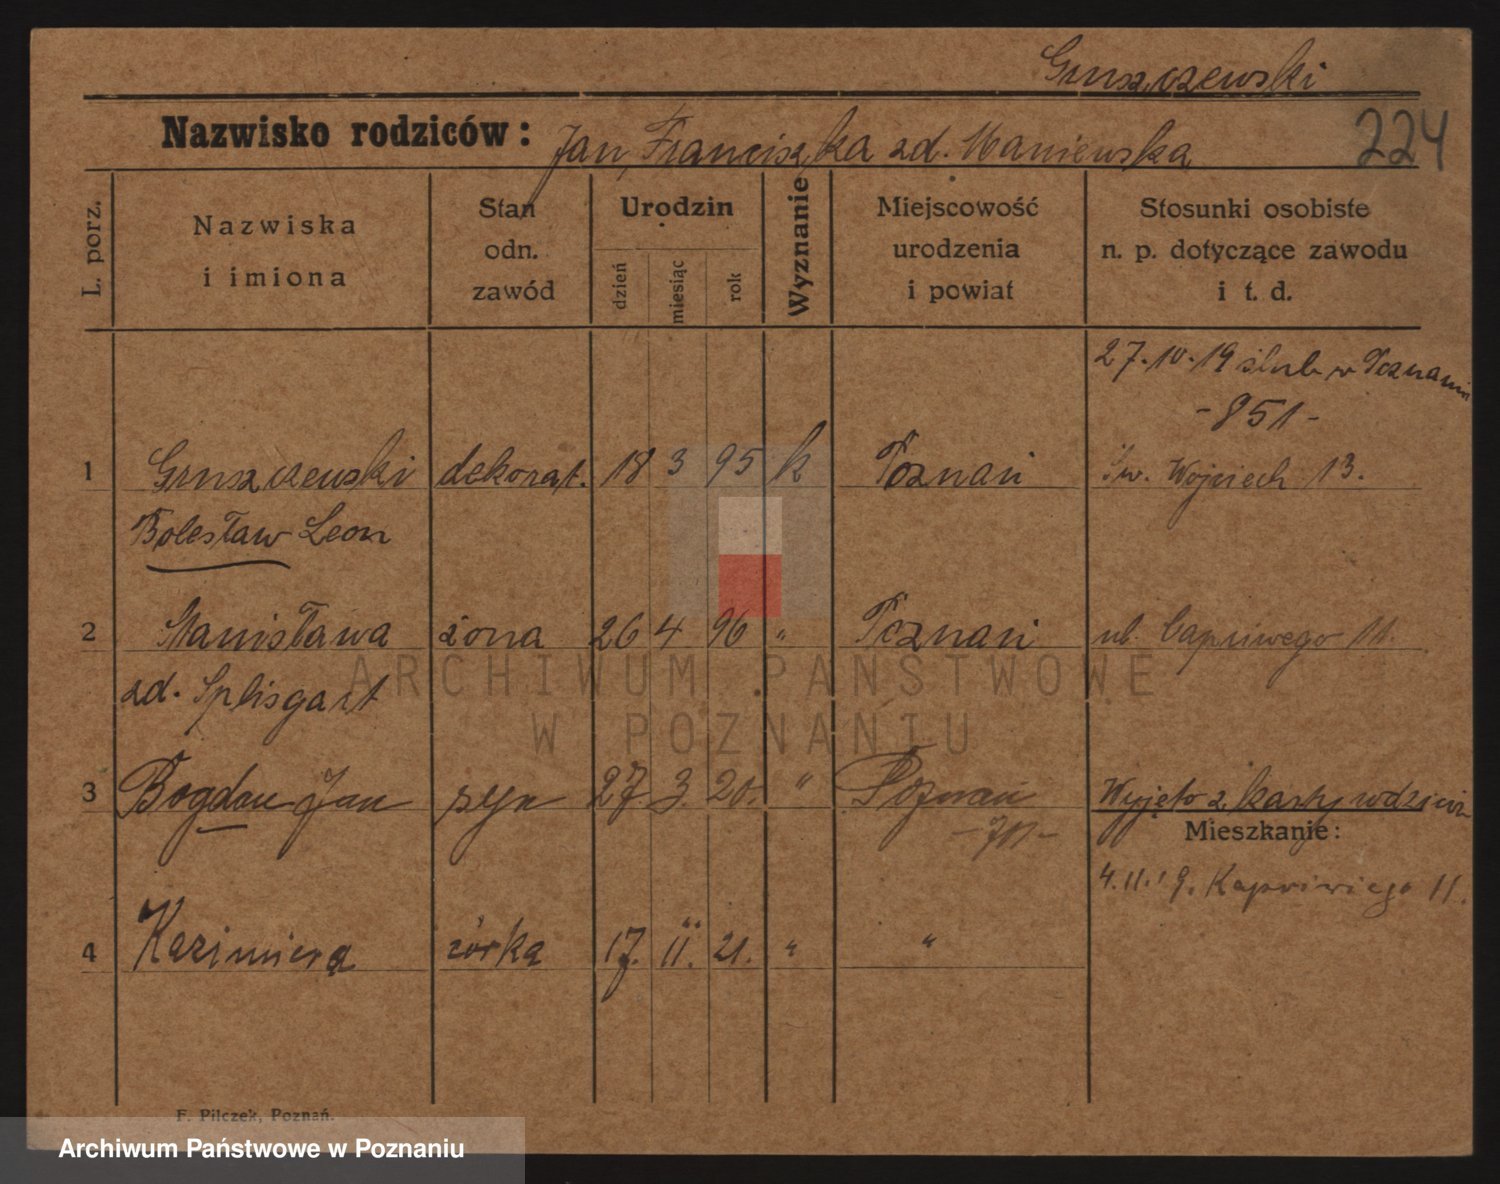 Gruszczewski
Nazwisko rodziców: Jan, Franciszka zd. Maniewska
224
L. porz.
Nazwiska
i imiona
Stan
odn.
zawód
Urodzin
dzień
miesiąc
rok
Wyznanie
Miejscowość
urodzenia
i powiat
Stosunki osobiste
n. p. dotyczące zawodu
i t. d.
27.10.19 ślub w Poznaniu
- 851 -
1 Gruszczewski dekorat. 18 3 95 k Poznań Św. Wojciech 13.
Bolesław Leon
2 Stanisława żona 26 4 96 " Poznań ul. Capriwego 11.
zd. Splisgart
3 Bogdan Jan syn 27. 3. 20. " Poznań Wyjęto z karty rodzicw
Mieszkanie:
4.11.19. Kapriwiego 11.
4 Kazimiera córka 17. 11. 21. " "
F. Pilczek, Poznań.
ARCHIWUM PAŃSTWOWE
W POZNANIU
Archiwum Państwowe w Poznaniu